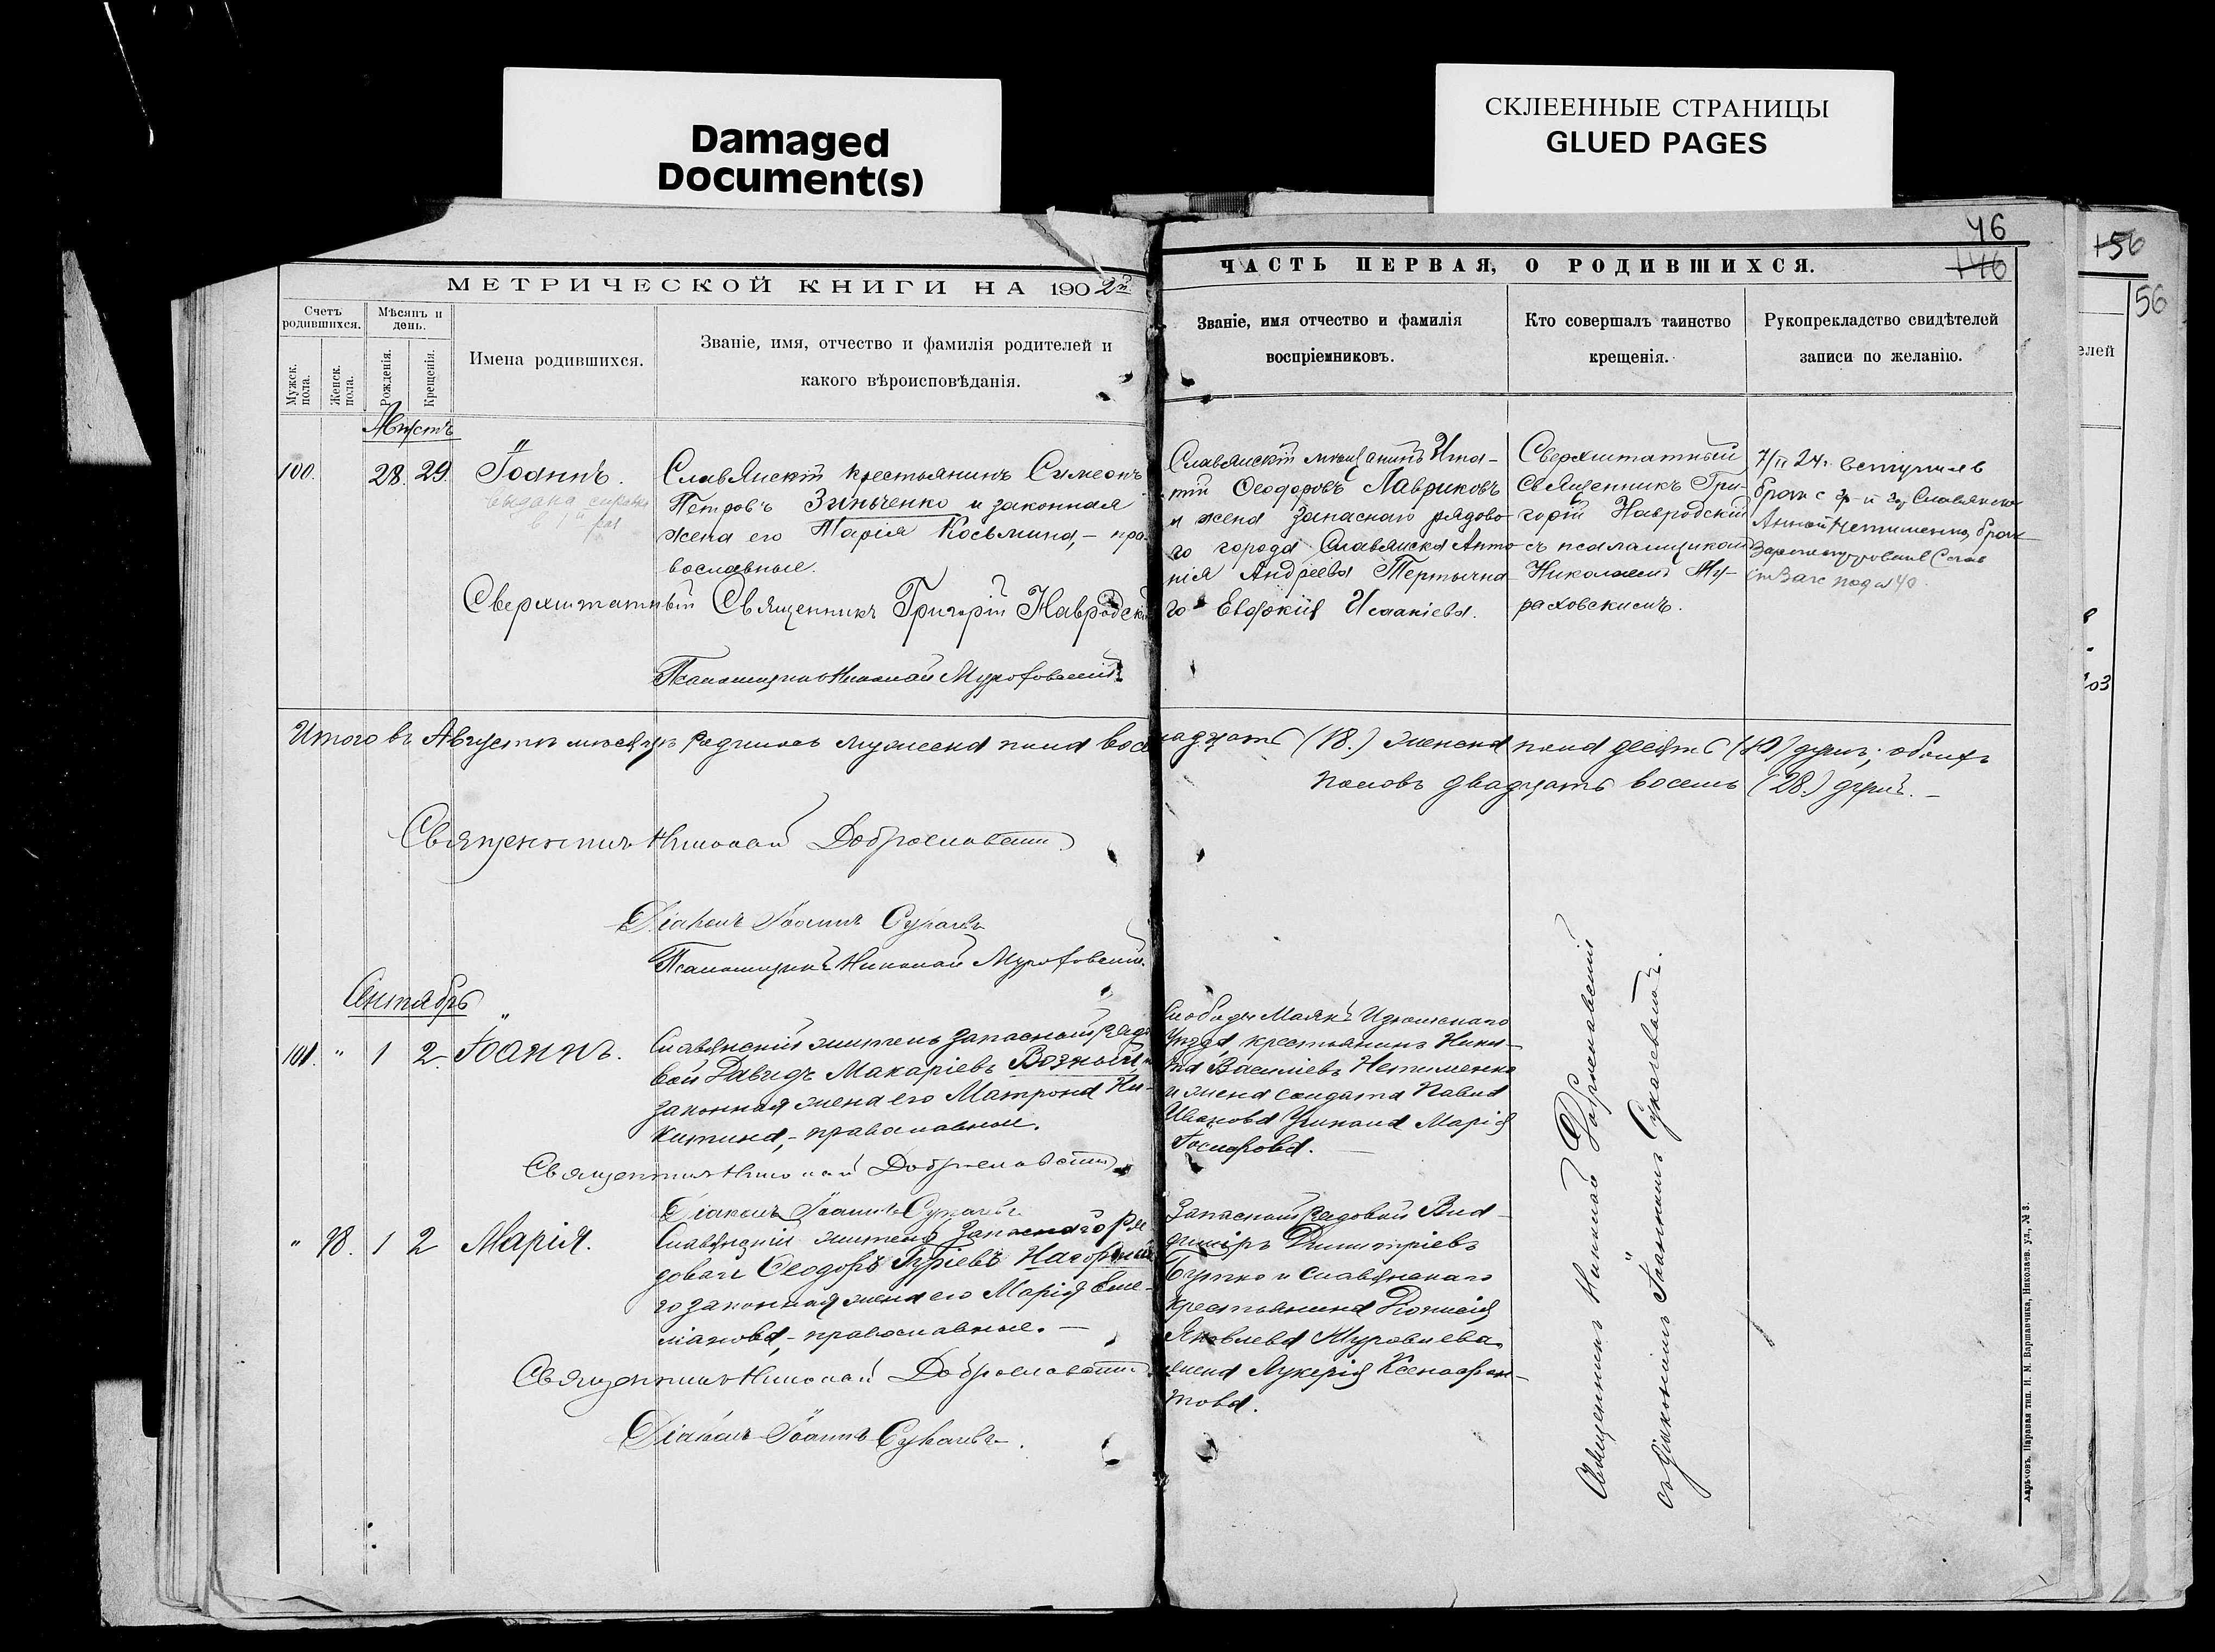 Damaged
Document(s)
СКЛЕЕННЫЕ СТРАНИЦЫ
GLUED PAGES
46
146
156
56
МЕТРИЧЕСКОЙ КНИГИ НА 1902й.
ЧАСТЬ ПЕРВАЯ, О РОДИВШИХСЯ.
Счетъ родившихся.
Мужск. пола.
Женск. пола.
Мѣсяцъ и день.
Рожденія.
Крещенія.
Имена родившихся.
Званіе, имя, отчество и фамилія родителей и
какого вѣроисповѣданія.
Званіе, имя отчество и фамилія
воспріемниковъ.
Кто совершалъ таинство
крещенія.
Рукоприкладство свидѣтелей
записи по желанію.
елей
Августъ
100. 28. 29. Іоаннъ.
выдана справка
в 1й раз
Славянскій крестьянинъ Симеонъ
Петровъ Зинченко и законная
жена его Марія Косьмина, - пра-
вославные.
Сверхштатный Священникъ Григорій Навродскій
Псаломщикъ Николай Мураховскій
Славянскій мѣщанинъ Игна-
тій Ѳеодоровъ Лавриковъ
и жена запаснаго рядово-
го города Славянска Анто-
нія Андреева Тертычна-
го Евдокія Исаакіева.
Сверхштатный
Священникъ Гри-
горій Навродскій
съ псаломщикомъ
Николаемъ Му-
раховскимъ.
7/II 24 г. вступил в
брак с гр-й гор Славянска
Анной Нетименко, брак
Зарегистрирован в Слав
под № 40
Итого въ Августѣ мѣсяцѣ родилось мужеска пола восемнадцать (18.) женска пола десять (10) душъ; обоихъ
половъ двадцать восемь (28.) душъ. -
Священникъ Николай Доброславскій
Діаконъ Іоаннъ Сукачевъ
Псаломщикъ Николай Мураховскій.
Сентябрь
101. " 1 2. Іоаннъ.
Славянскій житель запасный рядо-
вой Давидъ Макаріевъ Возный и
законная жена его Матрона Ни-
китина, - православные.
Священникъ Николай Доброславскій
Діаконъ Іоаннъ Сукачевъ
Слободы Маякъ Изюмскаго
Уѣзда крестьянинъ Ники-
та Василіевъ Нетименко
и жена солдата Павла
Иванова Марія
Іосифова. -
" 98. 1 2 Марія.
Славянскій житель запаснаго ря-
доваго Ѳеодоръ Гуріевъ Нагорный
го законная жена его Марія Еме-
ліанова, - православные. -
Священникъ Николай Доброславскій
Діаконъ Іоаннъ Сукачевъ.
Запасный рядовой Вла-
диміръ Димитріевъ
Бутко и Славянскаго
крестьянина Діонисія
Яковлева Журавлева
жена Лукерія Ксенофон-
това.
Священникъ Николай Доброславскій
съ діакономъ Іоанномъ Сукачевымъ.
103
Харьковъ, Паровая тип. И. М. Варшавчика, Николаев. ул., № 3.